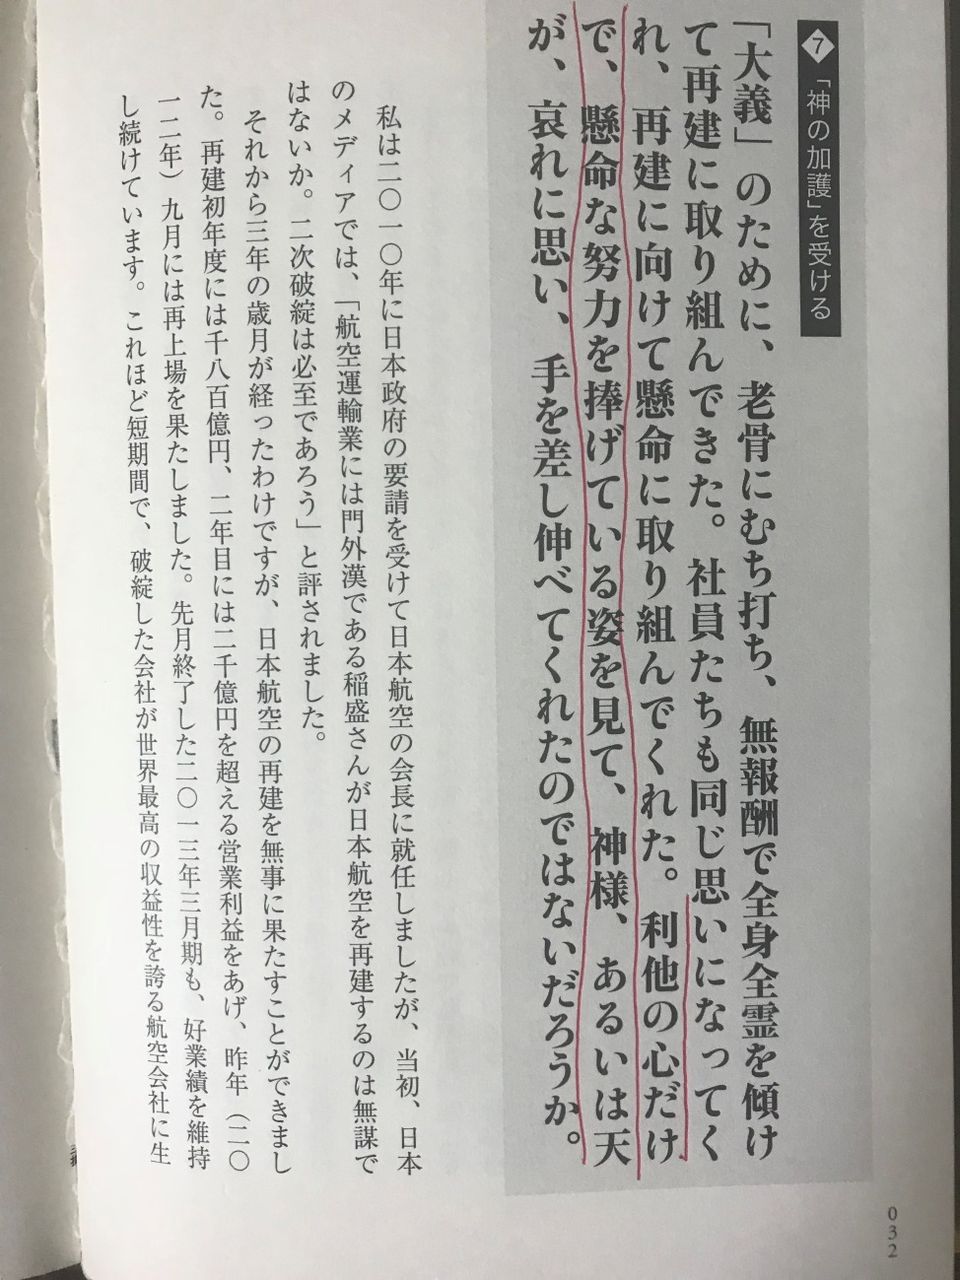 7 「神の加護」を受ける
「大義」のために、老骨にむち打ち、無報酬で全身全霊を傾け
て再建に取り組んできた。社員たちも同じ思いになってく
れ、再建に向けて懸命に取り組んでくれた。利他の心だけ
で、懸命な努力を捧げている姿を見て、神様、あるいは天
が、哀れに思い、手を差し伸べてくれたのではないだろうか。
私は二〇一〇年に日本政府の要請を受けて日本航空の会長に就任しましたが、当初、日本
のメディアでは、「航空運輸業には門外漢である稲盛さんが日本航空を再建するのは無謀で
はないか。二次破綻は必至であろう」と評されました。
それから三年の歳月が経ったわけですが、日本航空の再建を無事に果たすことができまし
た。再建初年度には千八百億円、二年目には二千億円を超える営業利益をあげ、昨年（二〇
一二年）九月には再上場を果たしました。先月終了した二〇一三年三月期も、好業績を維持
し続けています。これほど短期間で、破綻した会社が世界最高の収益性を誇る航空会社に生
032